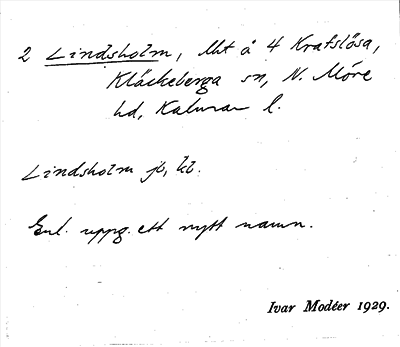 2 Lindsholm, lht å 4 Krafslösa,
Kläckeberga sn, N. Möre
hd, Kalmar l.
Lindsholm jb, kt.
Enl. uppg. ett nytt namn.
Ivar Modéer 1929.